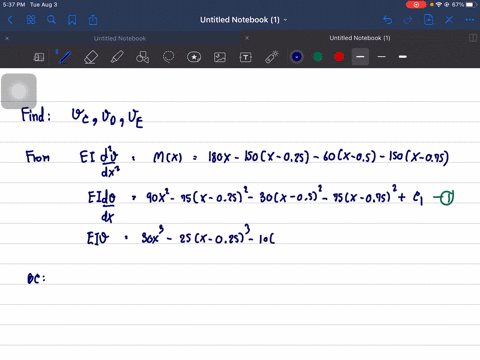 5:37 PM Tue Aug 3 67%
Untitled Notebook (1)
Untitled Notebook Untitled Notebook (1)
Find: v_C, v_D, v_E
From EI d²v/dx² = M(x) = 180x - 150(x-0.25) - 60(x-0.5) - 150(x-0.75)
EI dv/dx = 90x² - 75(x-0.25)² - 30(x-0.5)² - 75(x-0.75)² + C₁ - ①
EIv = 30x³ - 25(x-0.25)³ - 10(
BC: